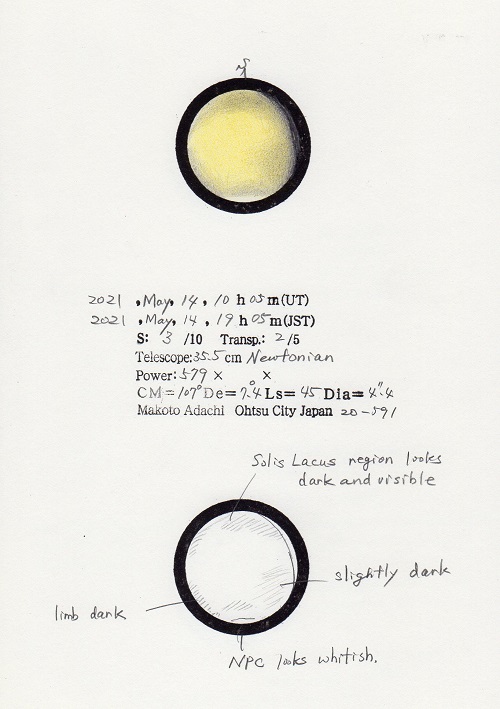 S
2021 , May, 14 , 10 h 05 m(UT)
2021 , May, 14 , 19 h 05 m(JST)
S: 3 /10 Transp.: 2 /5
Telescope:35.5 cm Newtonian
Power: 579 × ×
CM=107° De=7.4° Ls= 45 Dia= 4".4
Makoto Adachi Ohtsu City Japan 20-591
Solis Lacus region looks
dark and visible
slightly dark
limb dark
NPC looks whitish.